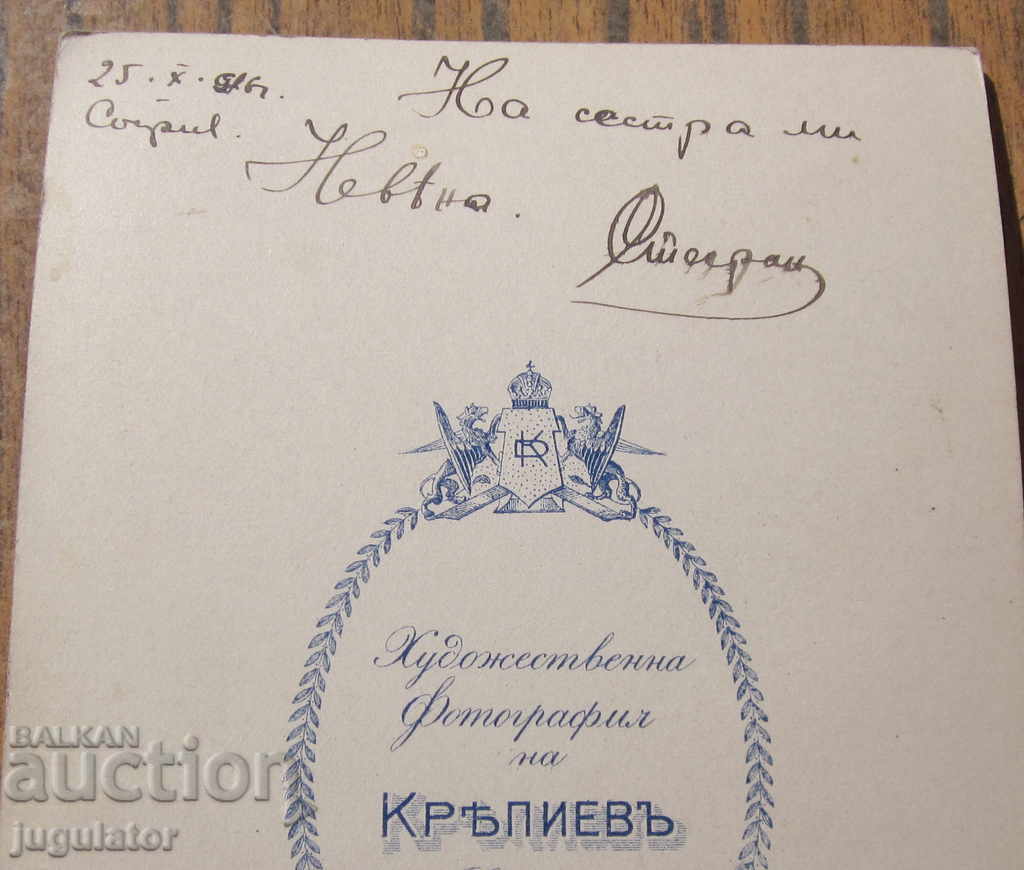 25. X.
София.
На сестра ми
Невѣна.
Стефан
КР
Художественна
Фотография
на
КРѢПИЕВЪ
BALKAN
auction
jugulator